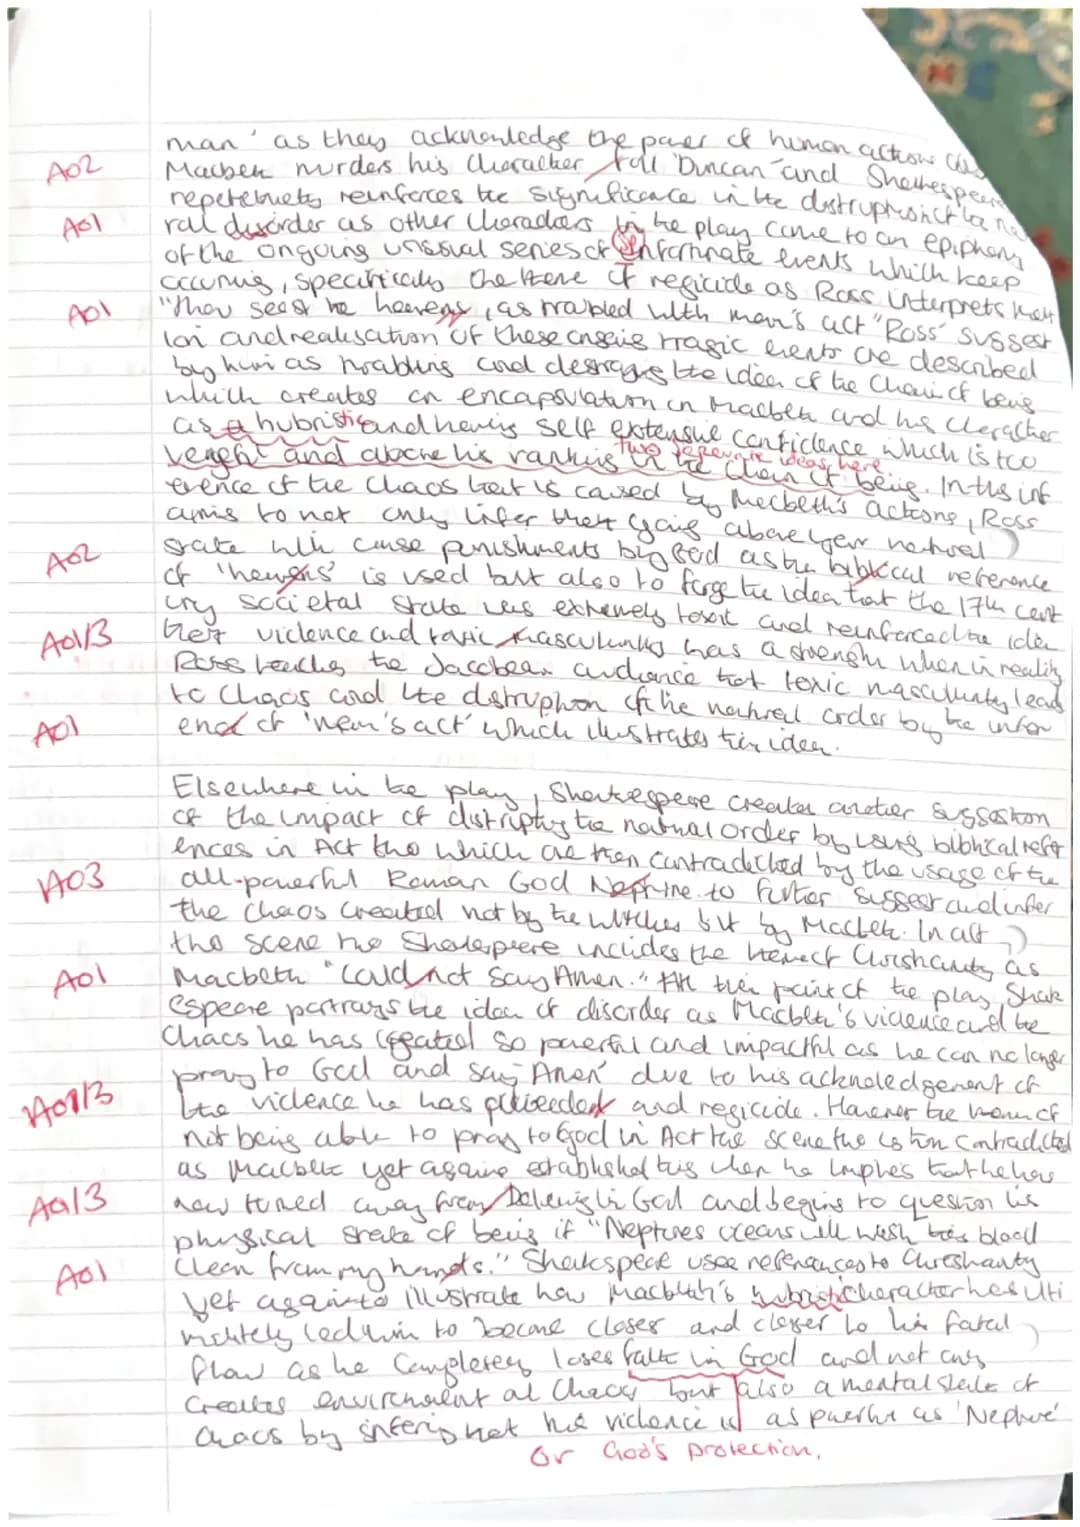 man' as they acknowledge the power of human actions
AO2 Macbeth murders his character foil 'Duncan' and Shakespeare
repeteinets reinforces the significance in the distruption of the na
AO1 ral disorder as other characters in the play come to an epiphany
of the ongoing unusual series of unfortunate events which keep
occuring, specifically the theme of regicide as Ross interprets that
AO1 "Thou seest the heavens, as troubled with man's act" Ross' suggest
ion and realisation of these tragic events are described
by him as troubling and destroys the idea of the Chain of being
which creates an encapsulation on Macbeth and his character
as a hubristic and having self extensive confidence which is too
Two seperate ideas here
and above his ranking in the chain of being. In this inf
erence of the chaos that is caused by Macbeth's actions, Ross
aims to not only infer that going above your natural
AO2 state will cause punishments by God as the biblical reference
of 'heavens' is used but also to forge the idea that the 17th cent
ury societal state was extremely toxic and reinforced the idea
AO1/3 that violence and toxic masculinity has a strength when in reality
Ross teaches the Jacobean audience that toxic masculinity leads
to chaos and the distruption of the natural order by the infer
AO1 end of 'men's act' which illustrates this idea.
Elsewhere in the play, Shakespeare creates another suggestion
of the impact of distripting the natural order by using biblical refer
ences in Act two which are then contradicted by the usage of the
AO3 all-powerful Roman God Neptune to further suggest and infer
the chaos created not by the witches but by Macbeth. In act
two scene two Shakespeare includes the theme of Christianity as
AO1 Macbeth "could not say Amen." At this point of the play, Shak
espeare portrays the idea of disorder as Macbeth's violence and the
chaos he has created so powerful and impactful as he can no longer
pray to God and say 'Amen' due to his acknoledgement of
AO1/3 the violence he has and regicide. However the of
not being able to pray to God in Act two scene two is then contradicted
as Macbeth yet again established this when he implies that he has
AO1/3 now turned away from beleiving in God and begins to question his
physical state of being if "Neptunes oceans will wash this blood
AO1 clean from my hands." Shakspeare uses references to Christianity
yet again to illustrate how Macbeth's hubristic character has ulti
mately led him to become closer and closer to his fatal
flaw as he completely loses faith in God and not only
creates environment of chaos but also a mental state of
chaos by infering that his violence is as powerful as 'Neptune'
or God's protection.